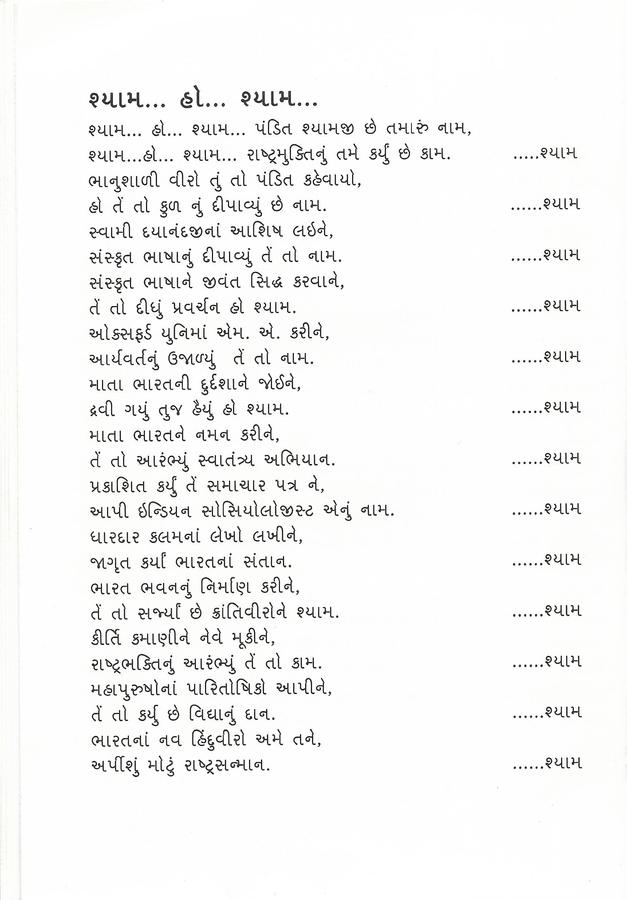 શ્યામ... હો... શ્યામ...
શ્યામ... હો... શ્યામ... પંડિત શ્યામજી છે તમારું નામ,
શ્યામ...હો... શ્યામ... રાષ્ટ્રમુક્તિનું તમે કર્યું છે કામ. .....શ્યામ
ભાનુશાળી વીરો તું તો પંડિત કહેવાયો,
હો તેં તો કુળ નું દીપાવ્યું છે નામ. ......શ્યામ
સ્વામી દયાનંદજીનાં આશિષ લઇને,
સંસ્કૃત ભાષાનું દીપાવ્યું તેં તો નામ. ......શ્યામ
સંસ્કૃત ભાષાને જીવંત સિદ્ધ કરવાને,
તેં તો દીધું પ્રવર્ચન હો શ્યામ. ......શ્યામ
ઓક્સફર્ડ યુનિમાં એમ. એ. કરીને,
આર્યવર્તનું ઉજાળ્યું તેં તો નામ. ......શ્યામ
માતા ભારતની દુર્દશાને જોઈને,
દ્રવી ગયું તુજ હૈયું હો શ્યામ. ......શ્યામ
માતા ભારતને નમન કરીને,
તેં તો આરંભ્યું સ્વાતંત્ર્ય અભિયાન. ......શ્યામ
પ્રકાશિત કર્યું તેં સમાચાર પત્ર ને,
આપી ઇન્ડિયન સોસિયોલોજીસ્ટ એનું નામ. ......શ્યામ
ધારદાર કલમનાં લેખો લખીને,
જાગૃત કર્યાં ભારતનાં સંતાન. ......શ્યામ
ભારત ભવનનું નિર્માણ કરીને,
તેં તો સર્જ્યાં છે ક્રાંતિવીરોને શ્યામ. ......શ્યામ
કીર્તિ કમાણીને નેવે મૂકીને,
રાષ્ટ્રભક્તિનું આરંભ્યું તેં તો કામ. ......શ્યામ
મહાપુરુષોનાં પારિતોષિકો આપીને,
તેં તો કર્યુ છે વિદ્યાનું દાન. ......શ્યામ
ભારતનાં નવ હિંદુવીરો અમે તને,
અર્પીશું મોટું રાષ્ટ્રસન્માન. ......શ્યામ